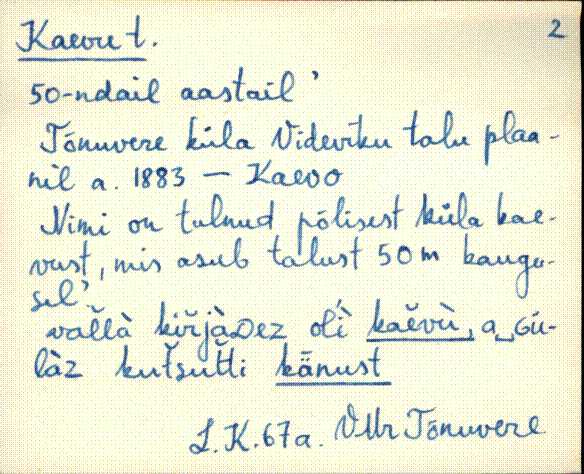 Kaevu t. 2
50-ndail aastail'
Tõnuvere küla Videviku talu plaa-
nil a. 1883 — Kaevo
Nimi on tulnud põlisest küla kae-
vust, mis asub talust 50 m kaugu-
sel'.
vallà kirjàDez olì kaevù, a
làz kutsutti känust
L.K. 67a. VMr Tõnuvere